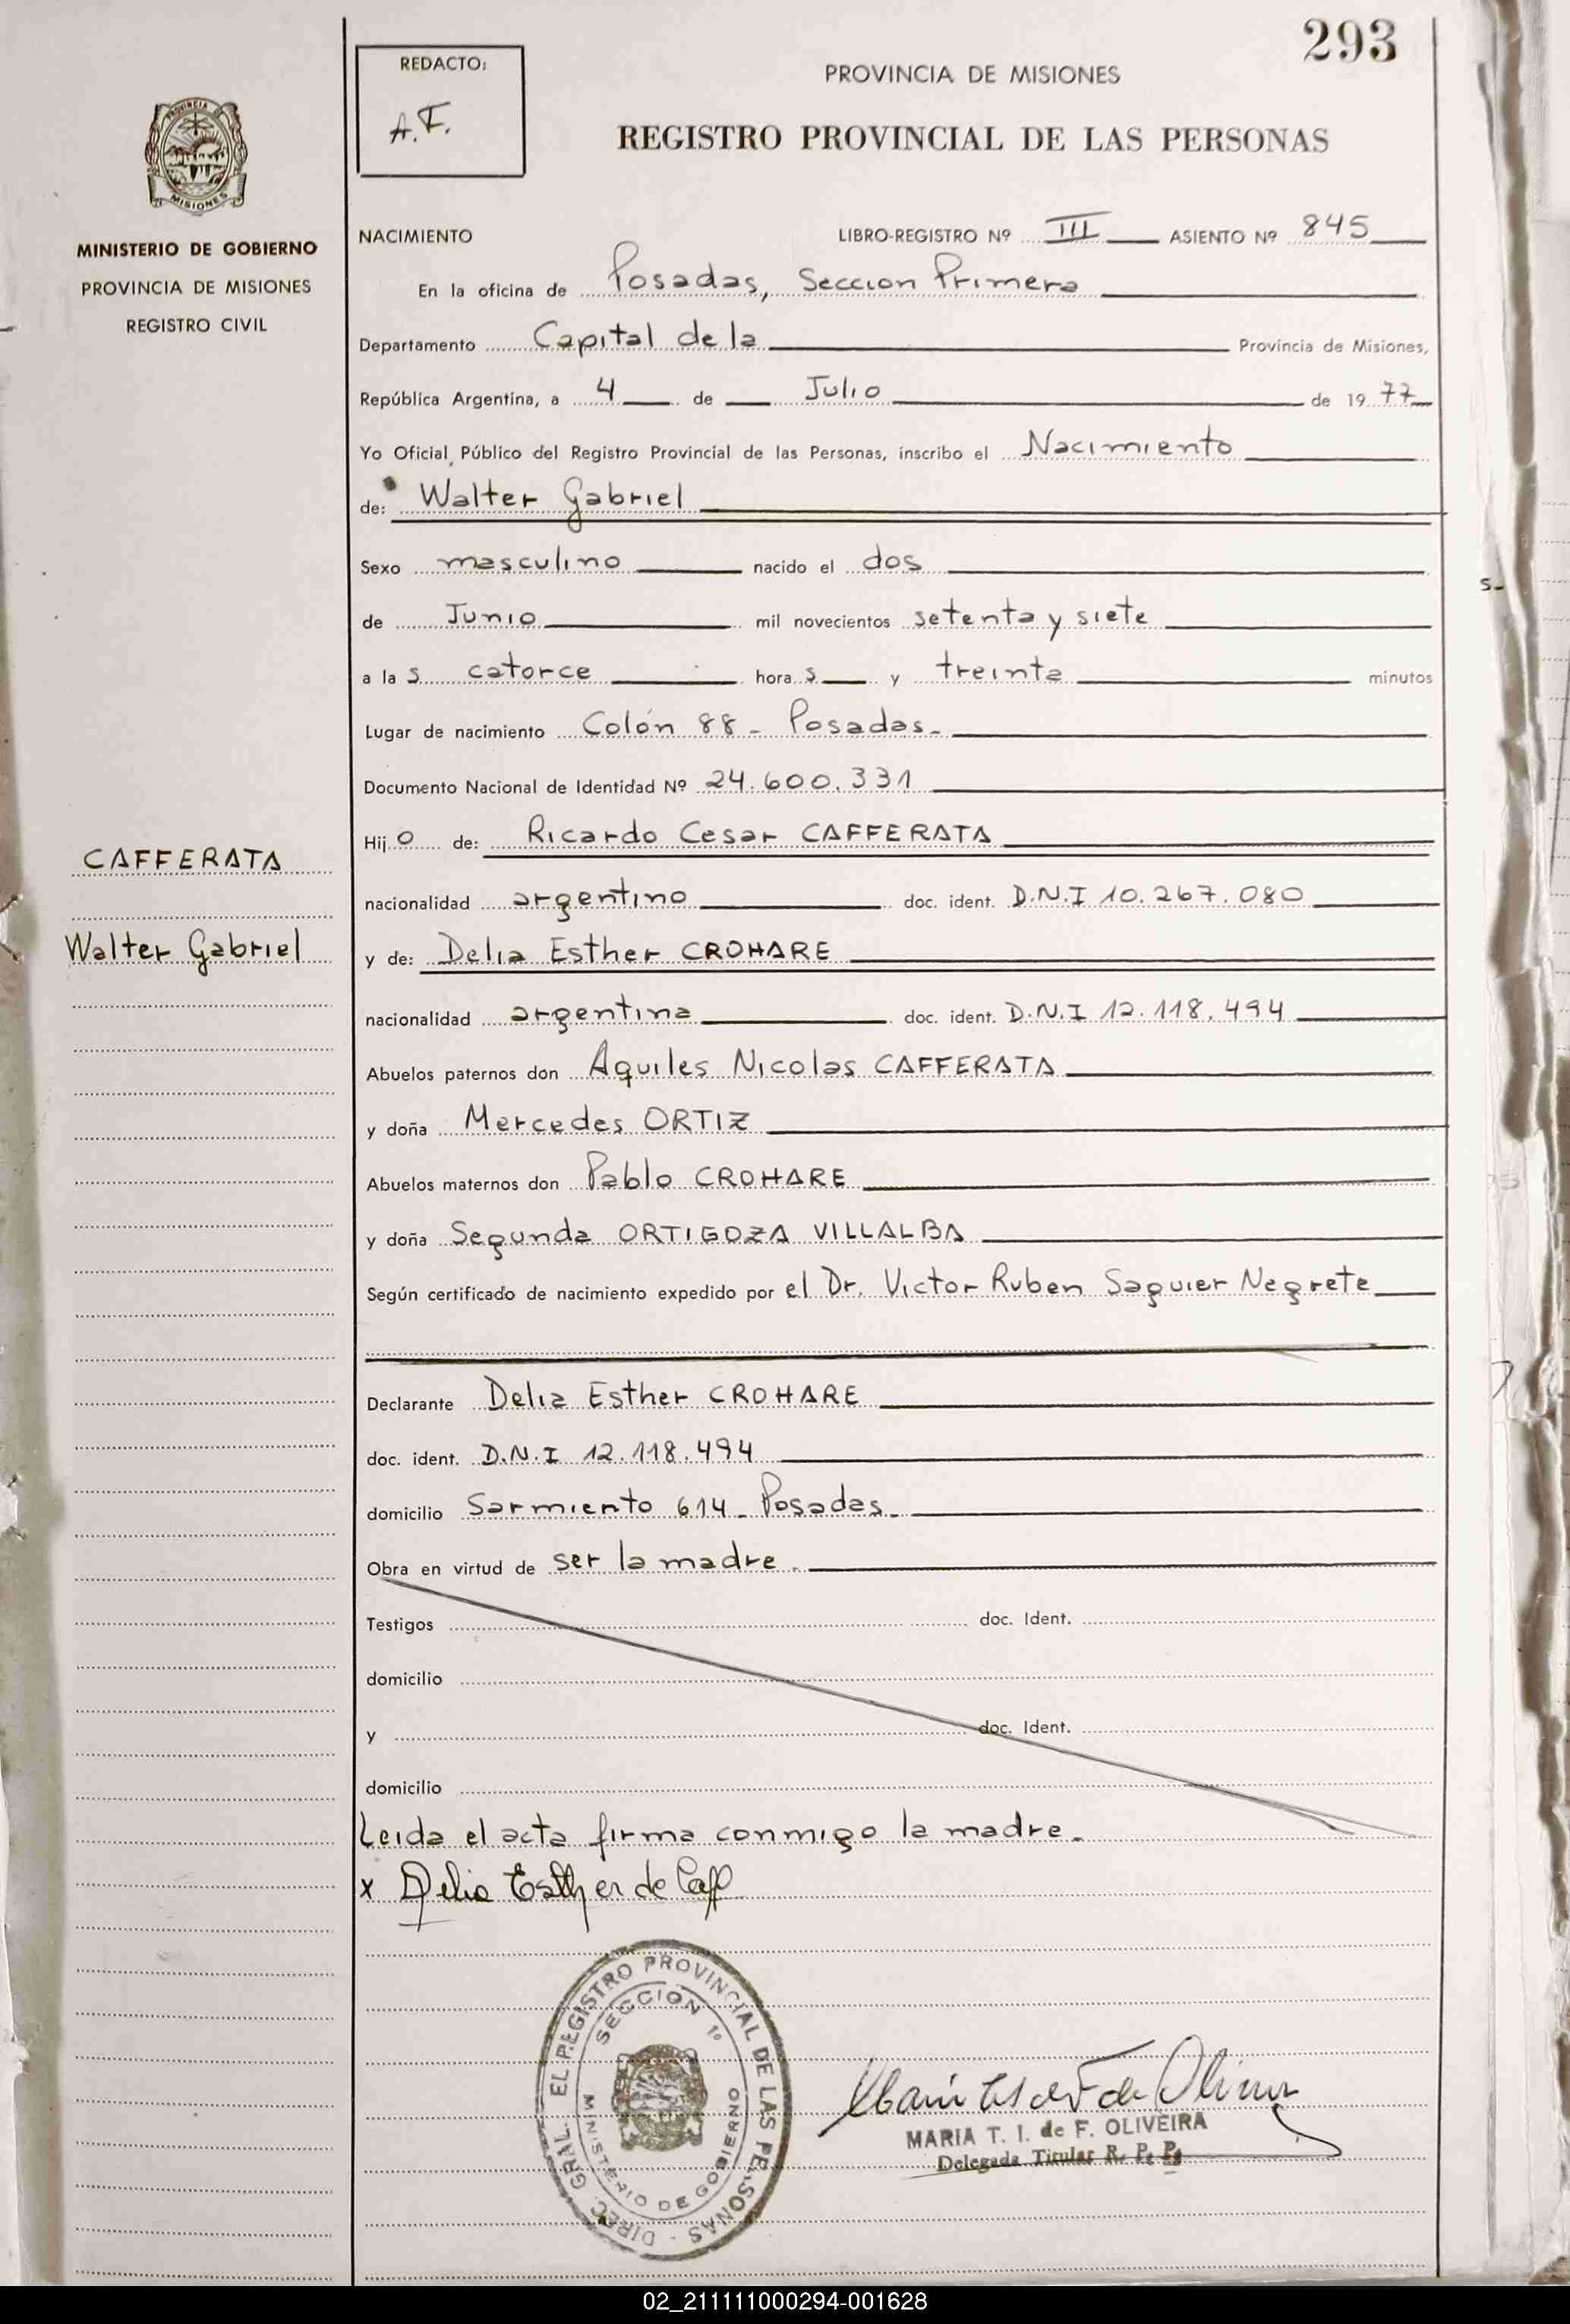 293
REDACTO:
A.F.
PROVINCIA DE MISIONES
REGISTRO PROVINCIAL DE LAS PERSONAS
PROVINCIA DE
MISIONES
MINISTERIO DE GOBIERNO
PROVINCIA DE MISIONES
REGISTRO CIVIL
NACIMIENTO LIBRO-REGISTRO Nº III ASIENTO Nº 845
En la oficina de Posadas, Seccion Primera
Departamento Capital de la Provincia de Misiones,
República Argentina, a 4 de Julio de 1977
Yo Oficial Público del Registro Provincial de las Personas, inscribo el Nacimiento
de: Walter Gabriel
Sexo masculino nacido el dos
de Junio mil novecientos setenta y siete
a las catorce horas y treinta minutos
Lugar de nacimiento Colón 88 - Posadas.-
Documento Nacional de Identidad Nº 24.600.331
Hijo de: Ricardo Cesar CAFFERATA
CAFFERATA
nacionalidad argentino doc. ident. D.N.I 10.267.080
Walter Gabriel
y de: Delia Esther CROHARE
nacionalidad argentina doc. ident. D.N.I 12.118.494
Abuelos paternos don Aquiles Nicolas CAFFERATA
y doña Mercedes ORTIZ
Abuelos maternos don Pablo CROHARE
y doña Segunda ORTIGOZA VILLALBA
Según certificado de nacimiento expedido por el Dr. Victor Ruben Saguier Negrete
Declarante Delia Esther CROHARE
doc. ident. D.N.I 12.118.494
domicilio Sarmiento 614 - Posadas.-
Obra en virtud de ser la madre.-
Testigos doc. Ident.
domicilio
y doc. Ident.
domicilio
Leida el acta firma conmigo la madre.-
x Delia Esther de Caff
DIREC. GRAL. EL REGISTRO PROVINCIAL DE LAS PERSONAS -
SECCION 1º
MINISTERIO DE GOBIERNO
MARIA T. I. de F. OLIVEIRA
Delegada Titular R. P. P.
02_211111000294-001628